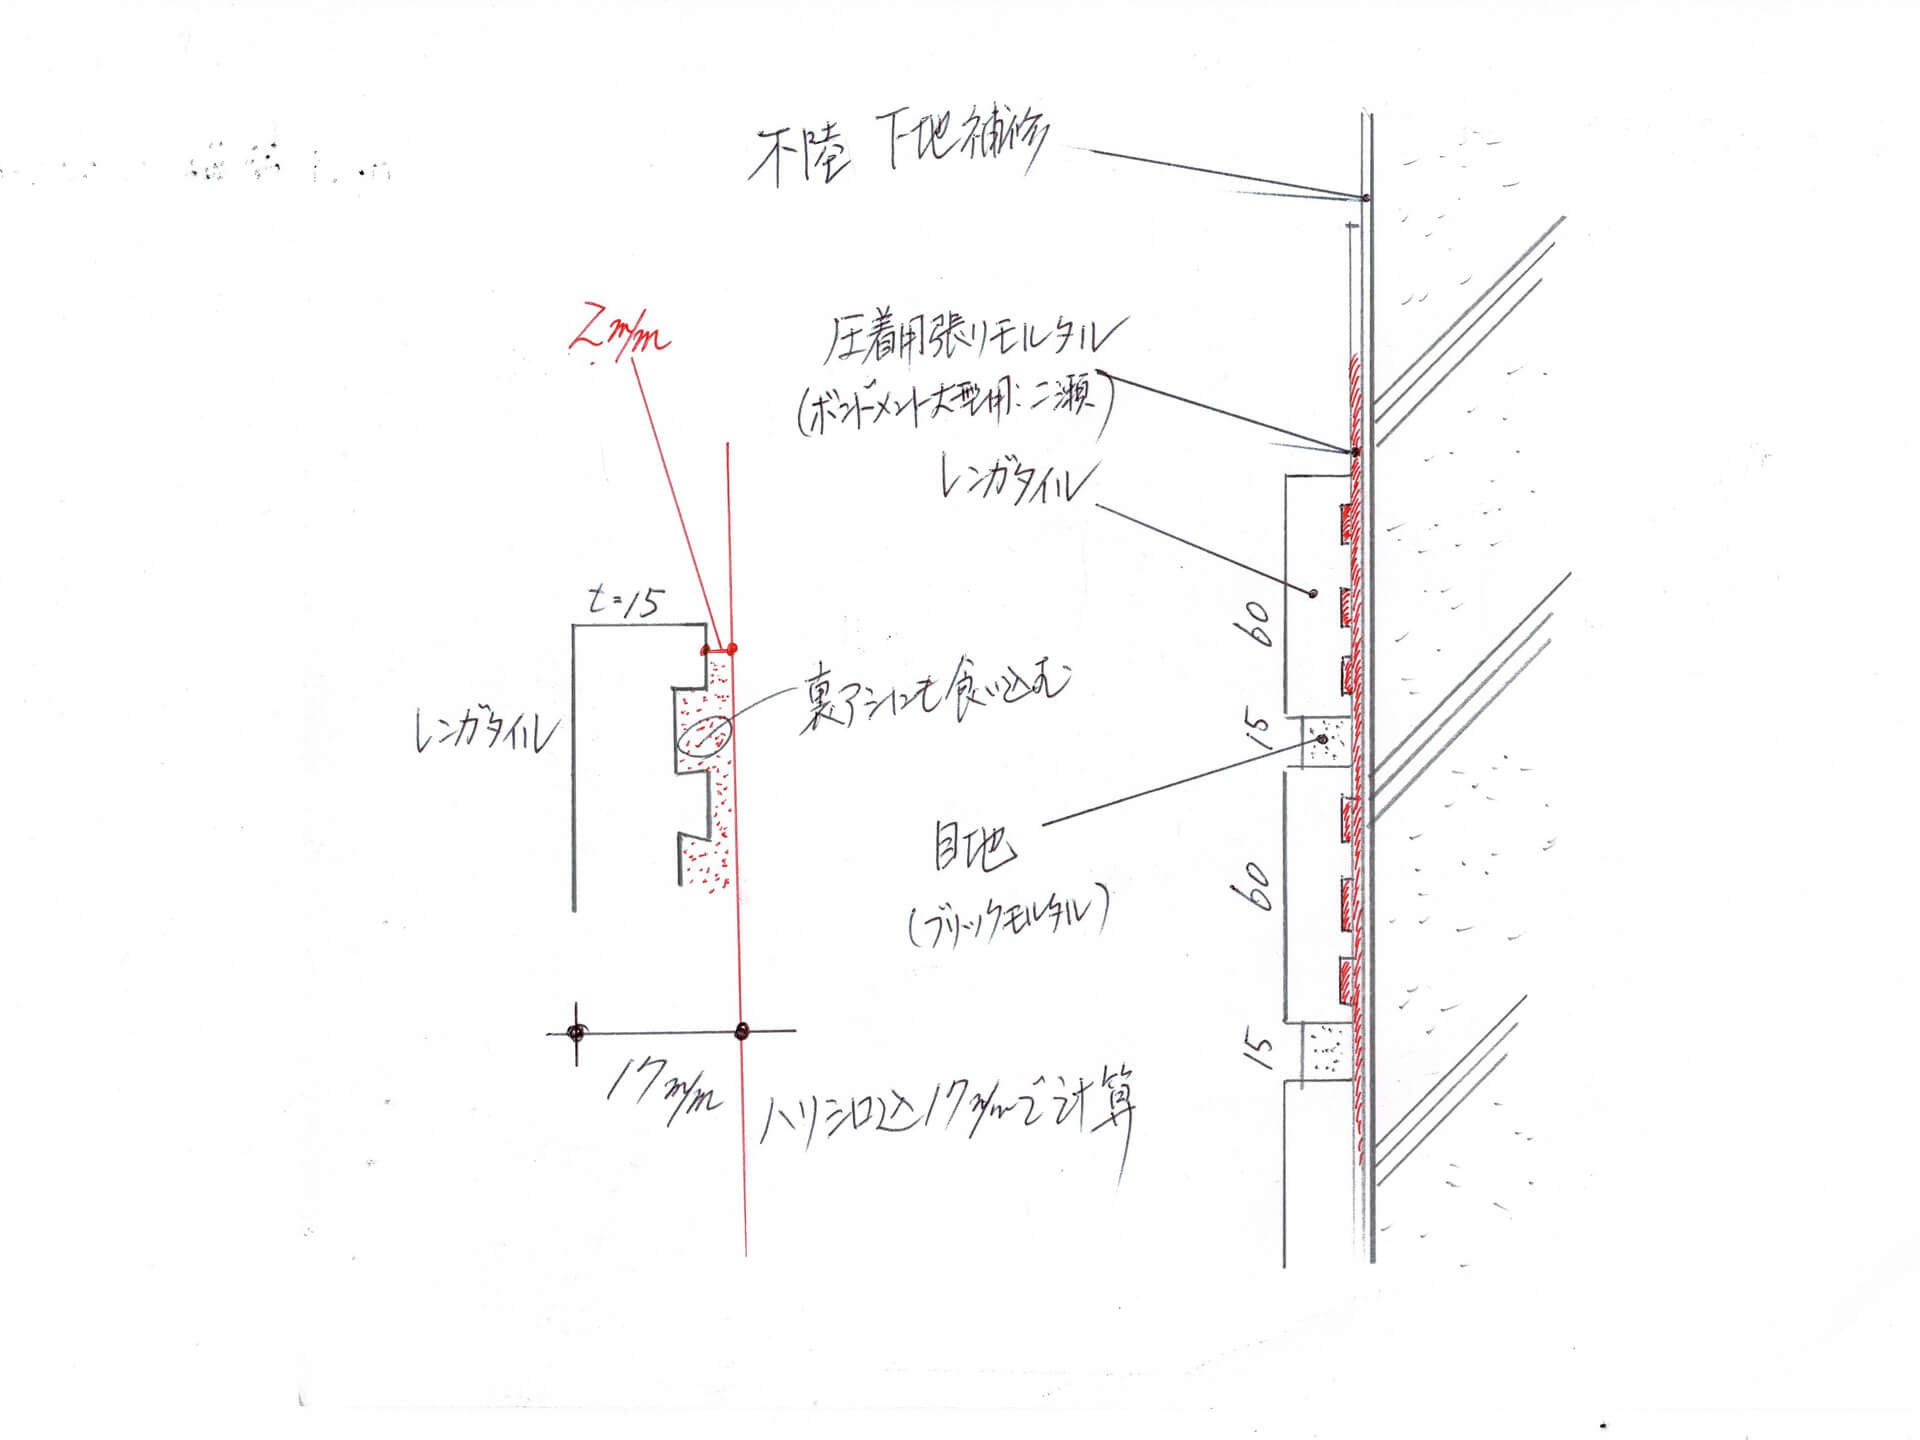 不陸 下地補修
2m/m
圧着用張リモルタル
(ボンドメント大型用:二瀬)
レンガタイル
t=15
60
レンガタイル
裏アシにも食い込む
15
目地
(ブリックモルタル)
60
17m/m
ハリシロ込17m/mで計算
15